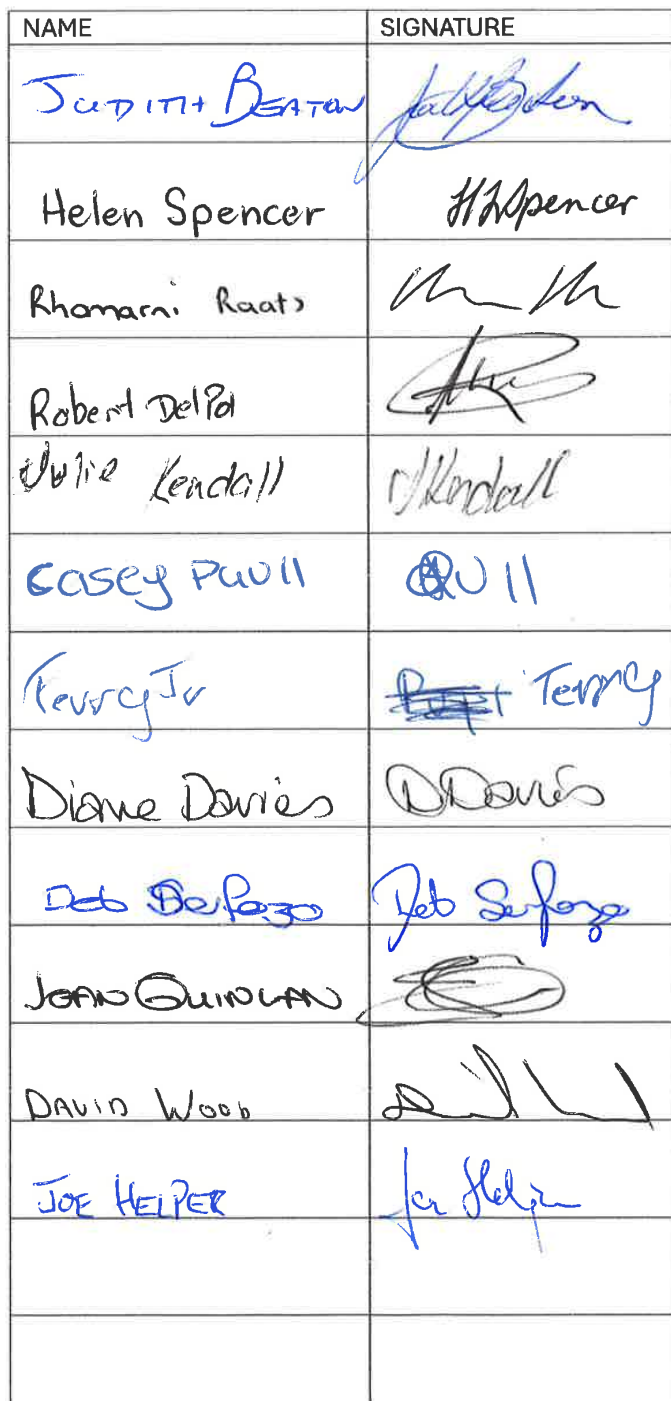 NAME SIGNATURE
JUDITH BEATON Judith Beaton
Helen Spencer HLSpencer
Rhamarni Raats
Robert DelPol
Julie Kendall JKendall
Casey Paull
Terry Jr Terry
Diane Davies DDavies
Deb Serfozo Deb Serfozo
JOAN QUINLAN
DAVID WOOD
JOE HELPER Joe Helper